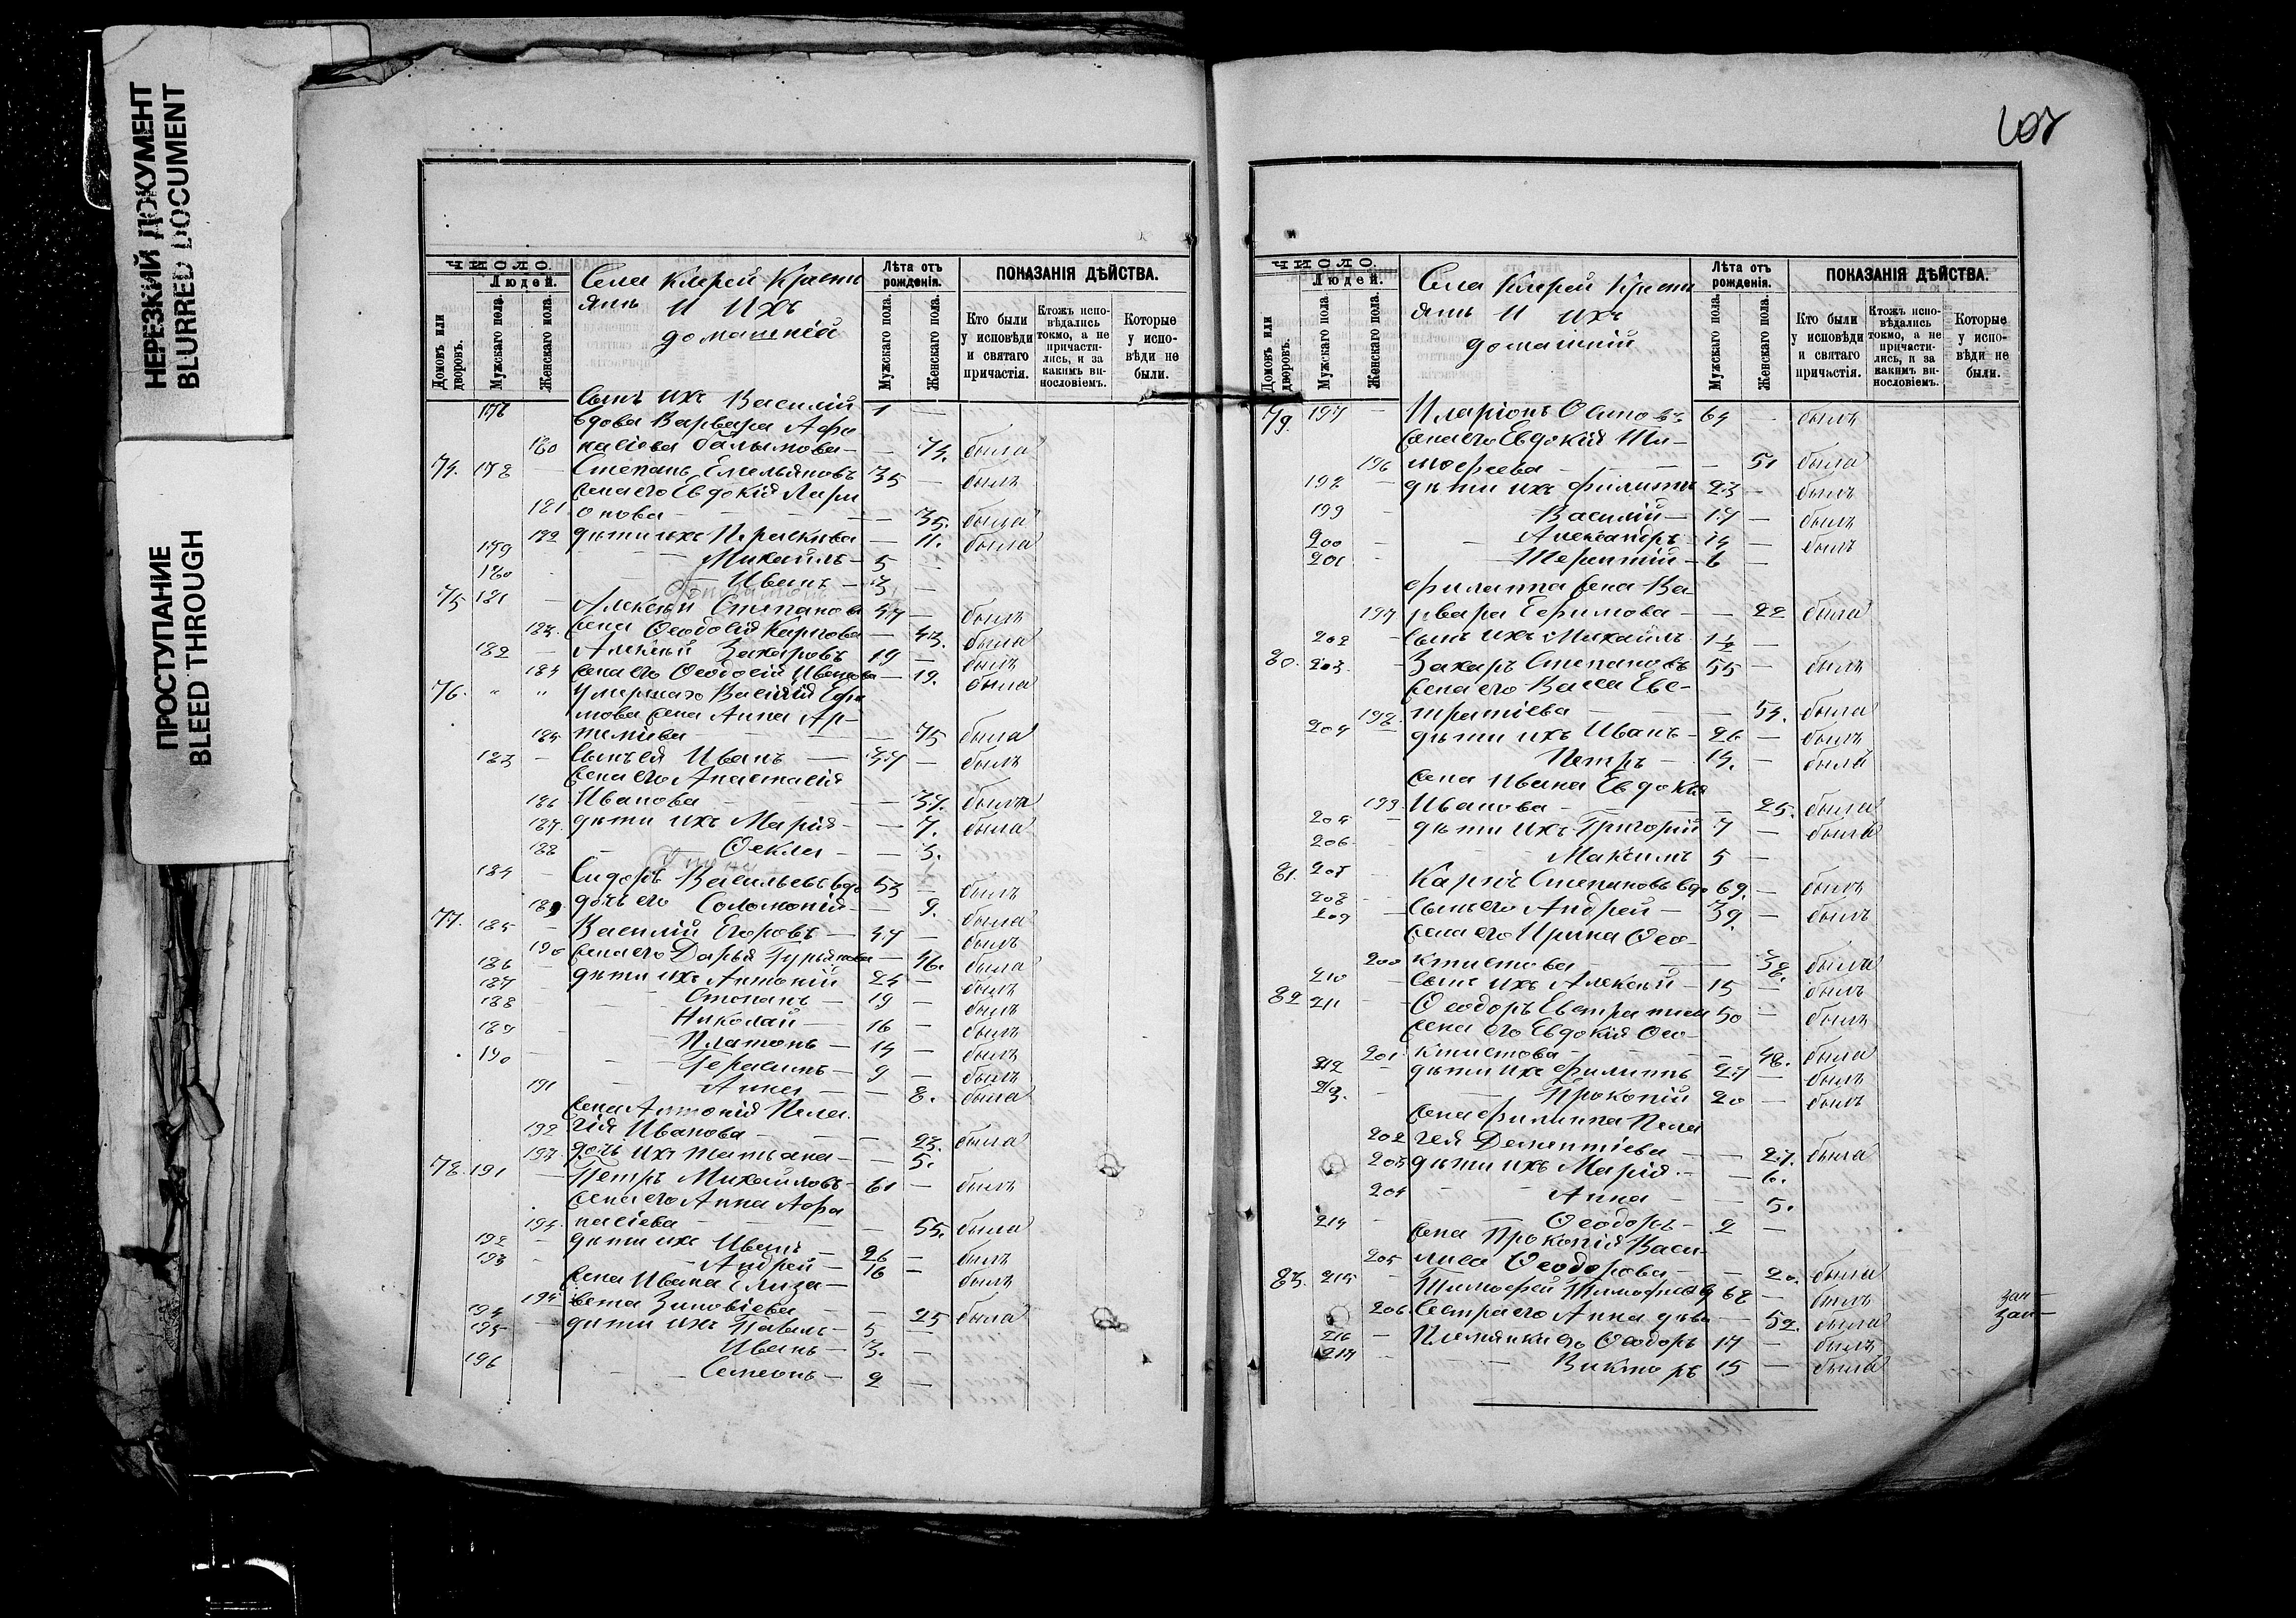 НЕРЕЗКИЙ ДОКУМЕНТ
BLURRED DOCUMENT
ПРОСТУПАНИЕ
BLEED THROUGH
ЧИСЛО.
Людей.
Домовъ или дворовъ.
Мужскаго пола.
Женскаго пола.
Села Керей Кресть
янъ и ихъ
домашній
Лѣта отъ рожденія.
Мужскаго пола.
Женскаго пола.
ПОКАЗАНІЯ ДѢЙСТВА.
Кто были у исповѣди и святаго причастія.
Ктожъ исповѣдались токмо, а не причастились, и за какимъ винословіемъ.
Которые у исповѣди не были.
Сынъ ихъ Василій 1 —
вдова Варвара Афа
180 насіева — 74. была
74. 178 Степанъ Емельяновъ 35 — былъ
жена его Евдокія Лари
181. онова — 35. была
182 дѣти ихъ Параскева — 11. была
179 Михаилъ — 5 —
180 Иванъ — 3 —
75 181 Алексѣй Степановъ 47 — былъ
183. жена Ѳеодосія Карпова — 43. была
182 Алексѣй Захаровъ 19 — былъ
184 жена его Ѳеодосія Иванова — 19. была
76. " " Умершаго Василія Ефи
мова жена Анна Ар-
185 темiева — 75 была
183 — Сынъ ея Иванъ — 47 — былъ
жена его Анастасія
186 Иванова — 37. была
187. дѣти ихъ Марія — 7. была
188 Ѳекла — 3.
184 Сидоръ Васильевъ вдо 53 — былъ
189 дочь его Соломонія — 9. была
77. 185 — Василій Егоровъ — 47 — былъ
190 жена его Дарья Гурьянова — 46. была
186 дѣти ихъ Антоній 24 — былъ
187 Степанъ — 19 — былъ
188 Николай — 16 — былъ
189 Платонъ — 14 — былъ
190 Герасимъ — 9 — былъ
191 Анна — 8. была
жена Антонія Пела
192 гія Иванова — 23. была
193. дочь ихъ Татьана — 5.
78. 191 — Петръ Михайловъ — 61 — былъ
жена его Анна Афа
194. насіева — 55. была
192 — дѣти ихъ Иванъ — 26 — былъ
193 Андрей — 16 — былъ
жена Ивана Елиза-
195 вета Зиновіева — 25 была
194 — дѣти ихъ Павелъ — 5 —
195 Иванъ — 3. —
196 Семеонъ — 2 —
107
ЧИСЛО.
Людей.
Домовъ или дворовъ.
Мужскаго пола.
Женскаго пола.
Села Керей Кресть
янъ и ихъ
домашній
Лѣта отъ рожденія.
Мужскаго пола.
Женскаго пола.
ПОКАЗАНІЯ ДѢЙСТВА.
Кто были у исповѣди и святаго причастія.
Ктожъ исповѣдались токмо, а не причастились, и за какимъ винословіемъ.
Которые у исповѣди не были.
79. 197 — Иларіонъ 64 — былъ
жена его Евдокія Ти-
196 мофеева — 51 была
198 — дѣти ихъ Филиппъ 23 — былъ
199 Василій — 17 — былъ
200 Александръ — 14 — былъ
201 Терентій — 6 —
Филиппа жена Ва
197 рвара Ефимова — 22 была
202 — сынъ ихъ Михаилъ 1½ —
80. 203. — Захаръ Степановъ 55 — былъ
жена его Васса Евс-
198. тратіева — 54. была
204 — дѣти ихъ Иванъ — 26 — былъ
Петръ — 14. — былъ
жена Ивана Евдокія
199. Иванова — 25. была
205 — дѣти ихъ Григорій 7 — былъ
206 Максимъ 5 —
81. 207 Карпъ Степановъ вдо 69. — былъ
208 — Сынъ его Андрей — 39. — былъ
209
жена его Ирина Ѳео-
200 ктистова — 38. была
210 — Сынъ ихъ Алексѣй — 15 — былъ
82 211 Ѳеодоръ Евстратіевъ 50 — былъ
жена его Евдокія Ѳео-
201 ктистова — 48. была
212 — дѣти ихъ Филиппъ 27 — былъ
213. Прокопій 20 — былъ
жена Филиппа Пела
202 гея Дементіева — 27. была
203 дѣти ихъ Марія — 6.
204 Анна — 5.
214 Ѳеодоръ — 2 —
жена Прокопія Васи-
205 лиса Ѳеодорова — 20. была
83. 215 Тимофей Тимофеевъ 68 — былъ
206 Сестра его Анна дѣва — 52. была
216 — Племянки его Ѳеодоръ 17 — былъ
217 Викторъ 15 — былъ